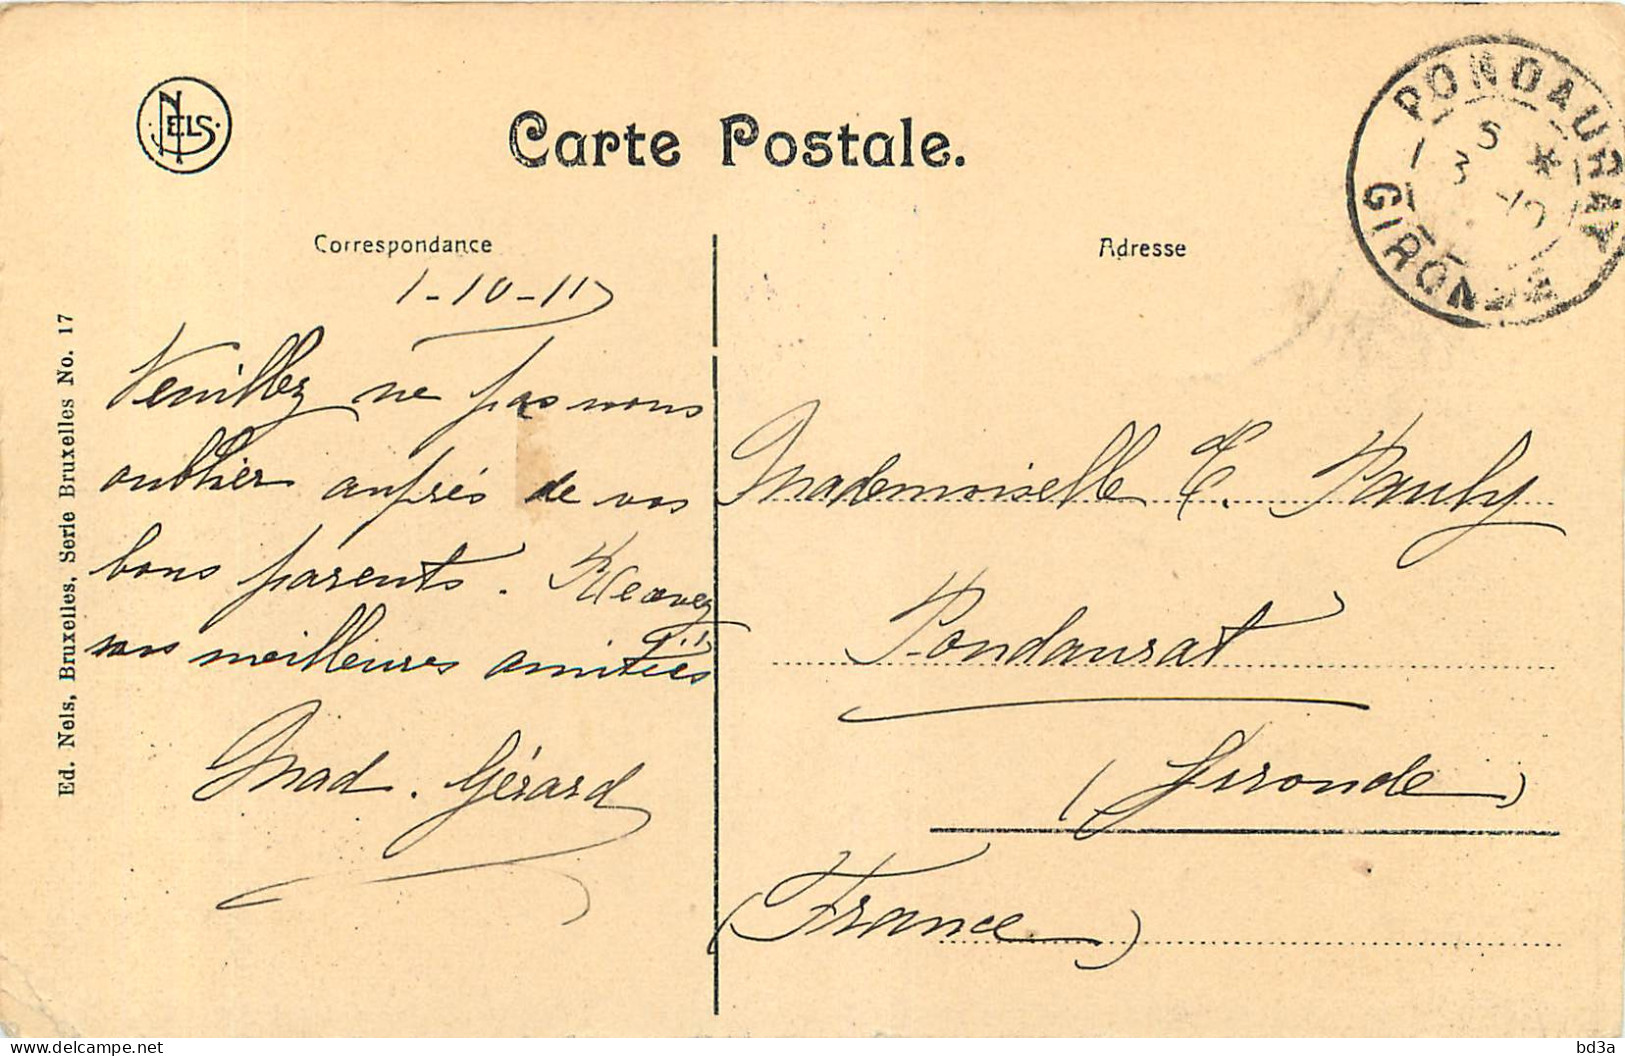 NELS
Carte Postale.
PONDAURAT
5 *
3 -10
GIRONDE
Correspondance
Adresse
1-10-11
Veuillez ne pas nous
oublier auprès de vos
bons parents. Recevez
nos meilleures amitiés
Mad. Gérard
Mademoiselle E. Pauly
Pondaurat
(Gironde)
(France)
Ed. Nels, Bruxelles, Serie Bruxelles No. 17
bd3a